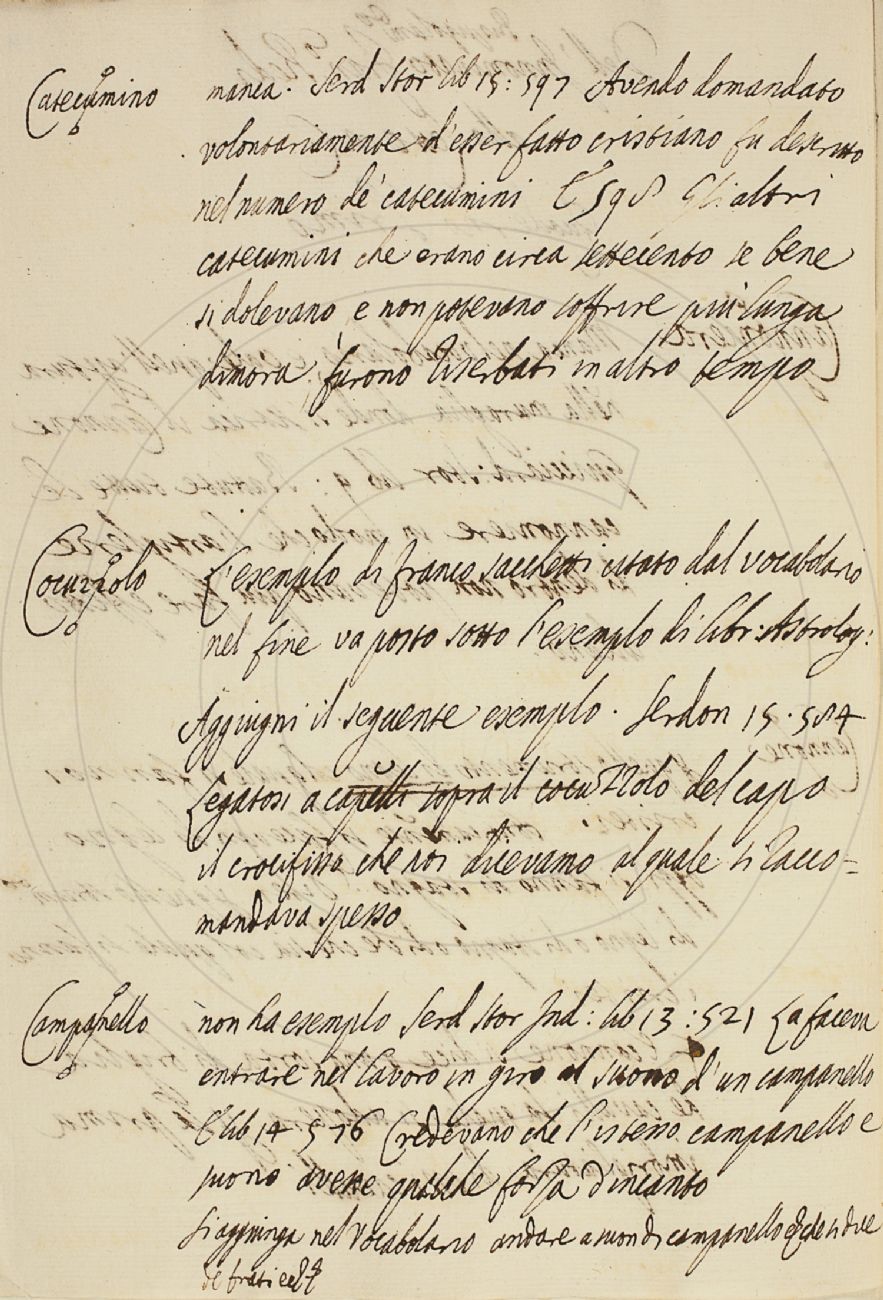 Catecumino manca. Serd Stor lib 15: 597 Avendo domandato
volontariamente d'esser fatto cristiano fu descritto
nel numero de' catecumini E 598 Gli altri
catecumini che erano circa settecento se bene
si dolevano, e non potevano soffrire più lunga
dimora, furono riserbati in altro tempo
Cocuzzolo L'esemplo di franco sacchetti citato dal vocabolario
nel fine va posto sotto l'esemplo di libr: Astrolog:
Aggiugni il seguente esemplo. Serdon 15. 584
Legatosi a capelli sopra il cocuzzolo del capo
il crocifisso che noi dicevamo al quale si racco=
mandava spesso
Campanello non ha esemplo Serd Stor Ind: lib 13: 521 La faceva
entrare nel lavoro in giro al suono d'un campanello
E lib 14. 576 Credevano che l'istesso campanello e
suono avesse qualche forza d'incanto
Si aggiunga nel Vocabolario andare a suon di campanello che si dice
de frati